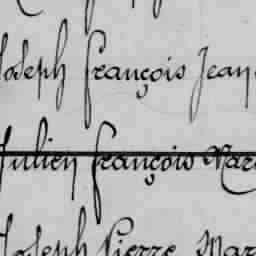 Joseph François Jean
Julien François Mar
Joseph Pierre Mar